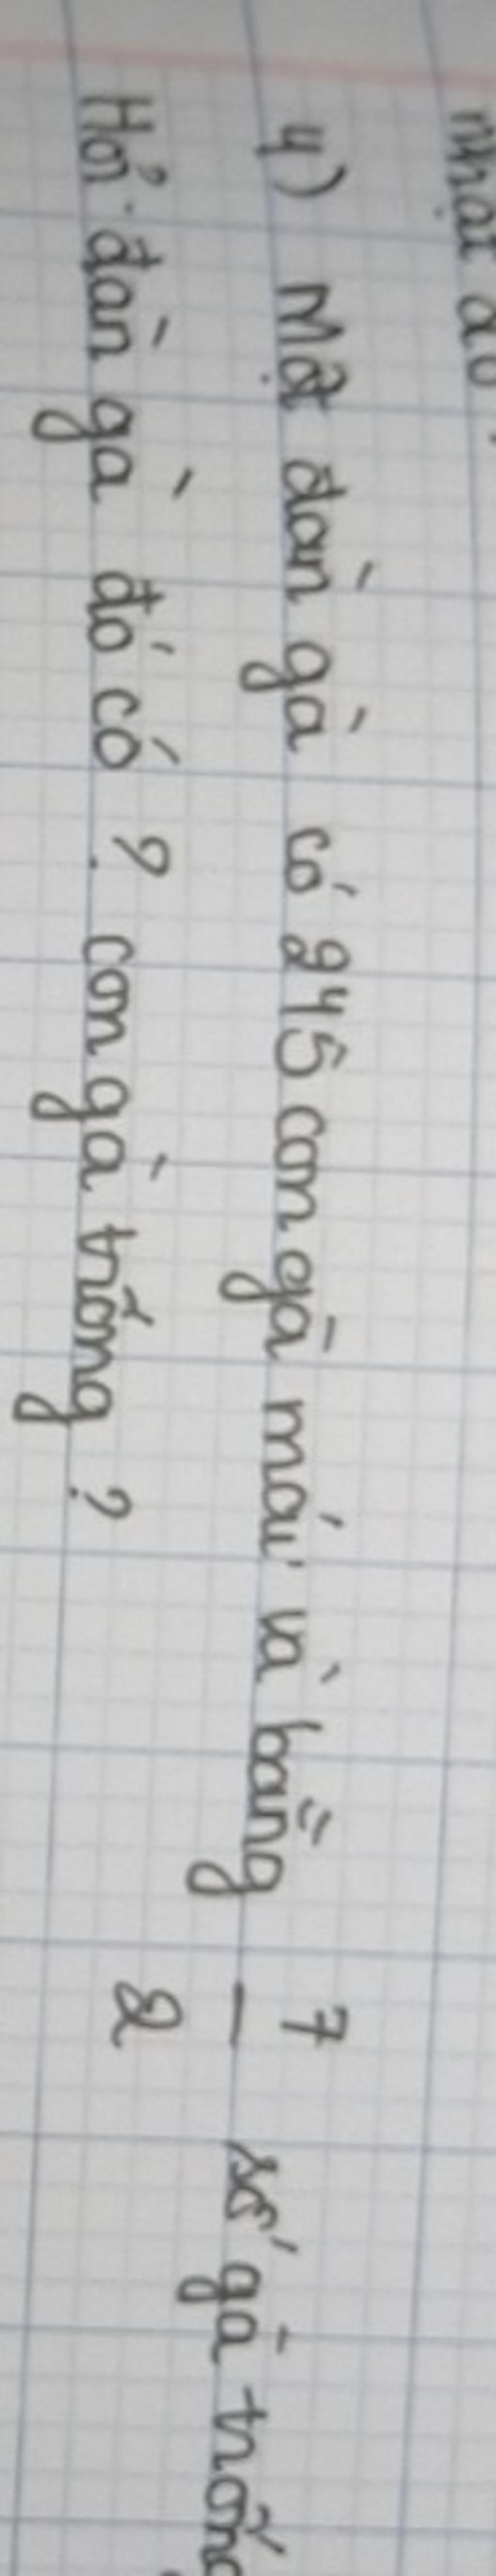 nhật
4) Một đàn gà có 245 con gà mái và bằng 7/2 số gà trống
Hỏi đàn gà đó có ? con gà trống ?